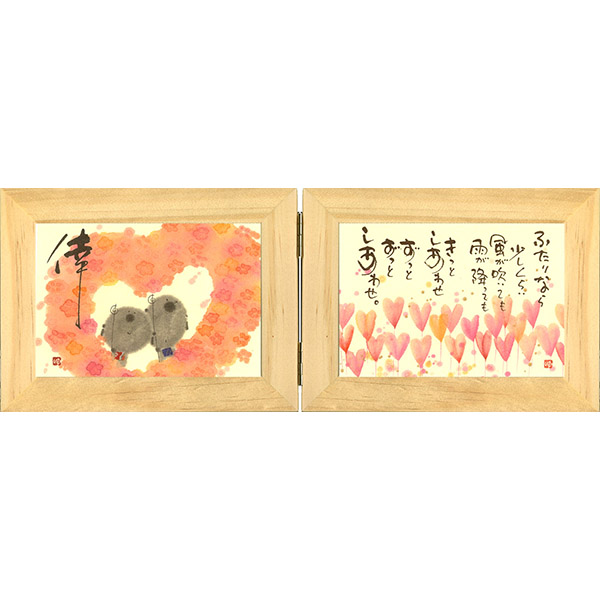 倖
ふたりなら
少しくらい
風が吹いても
雨が降っても
きっと
しあわせ
ずっと
ずっと
しあわせ。